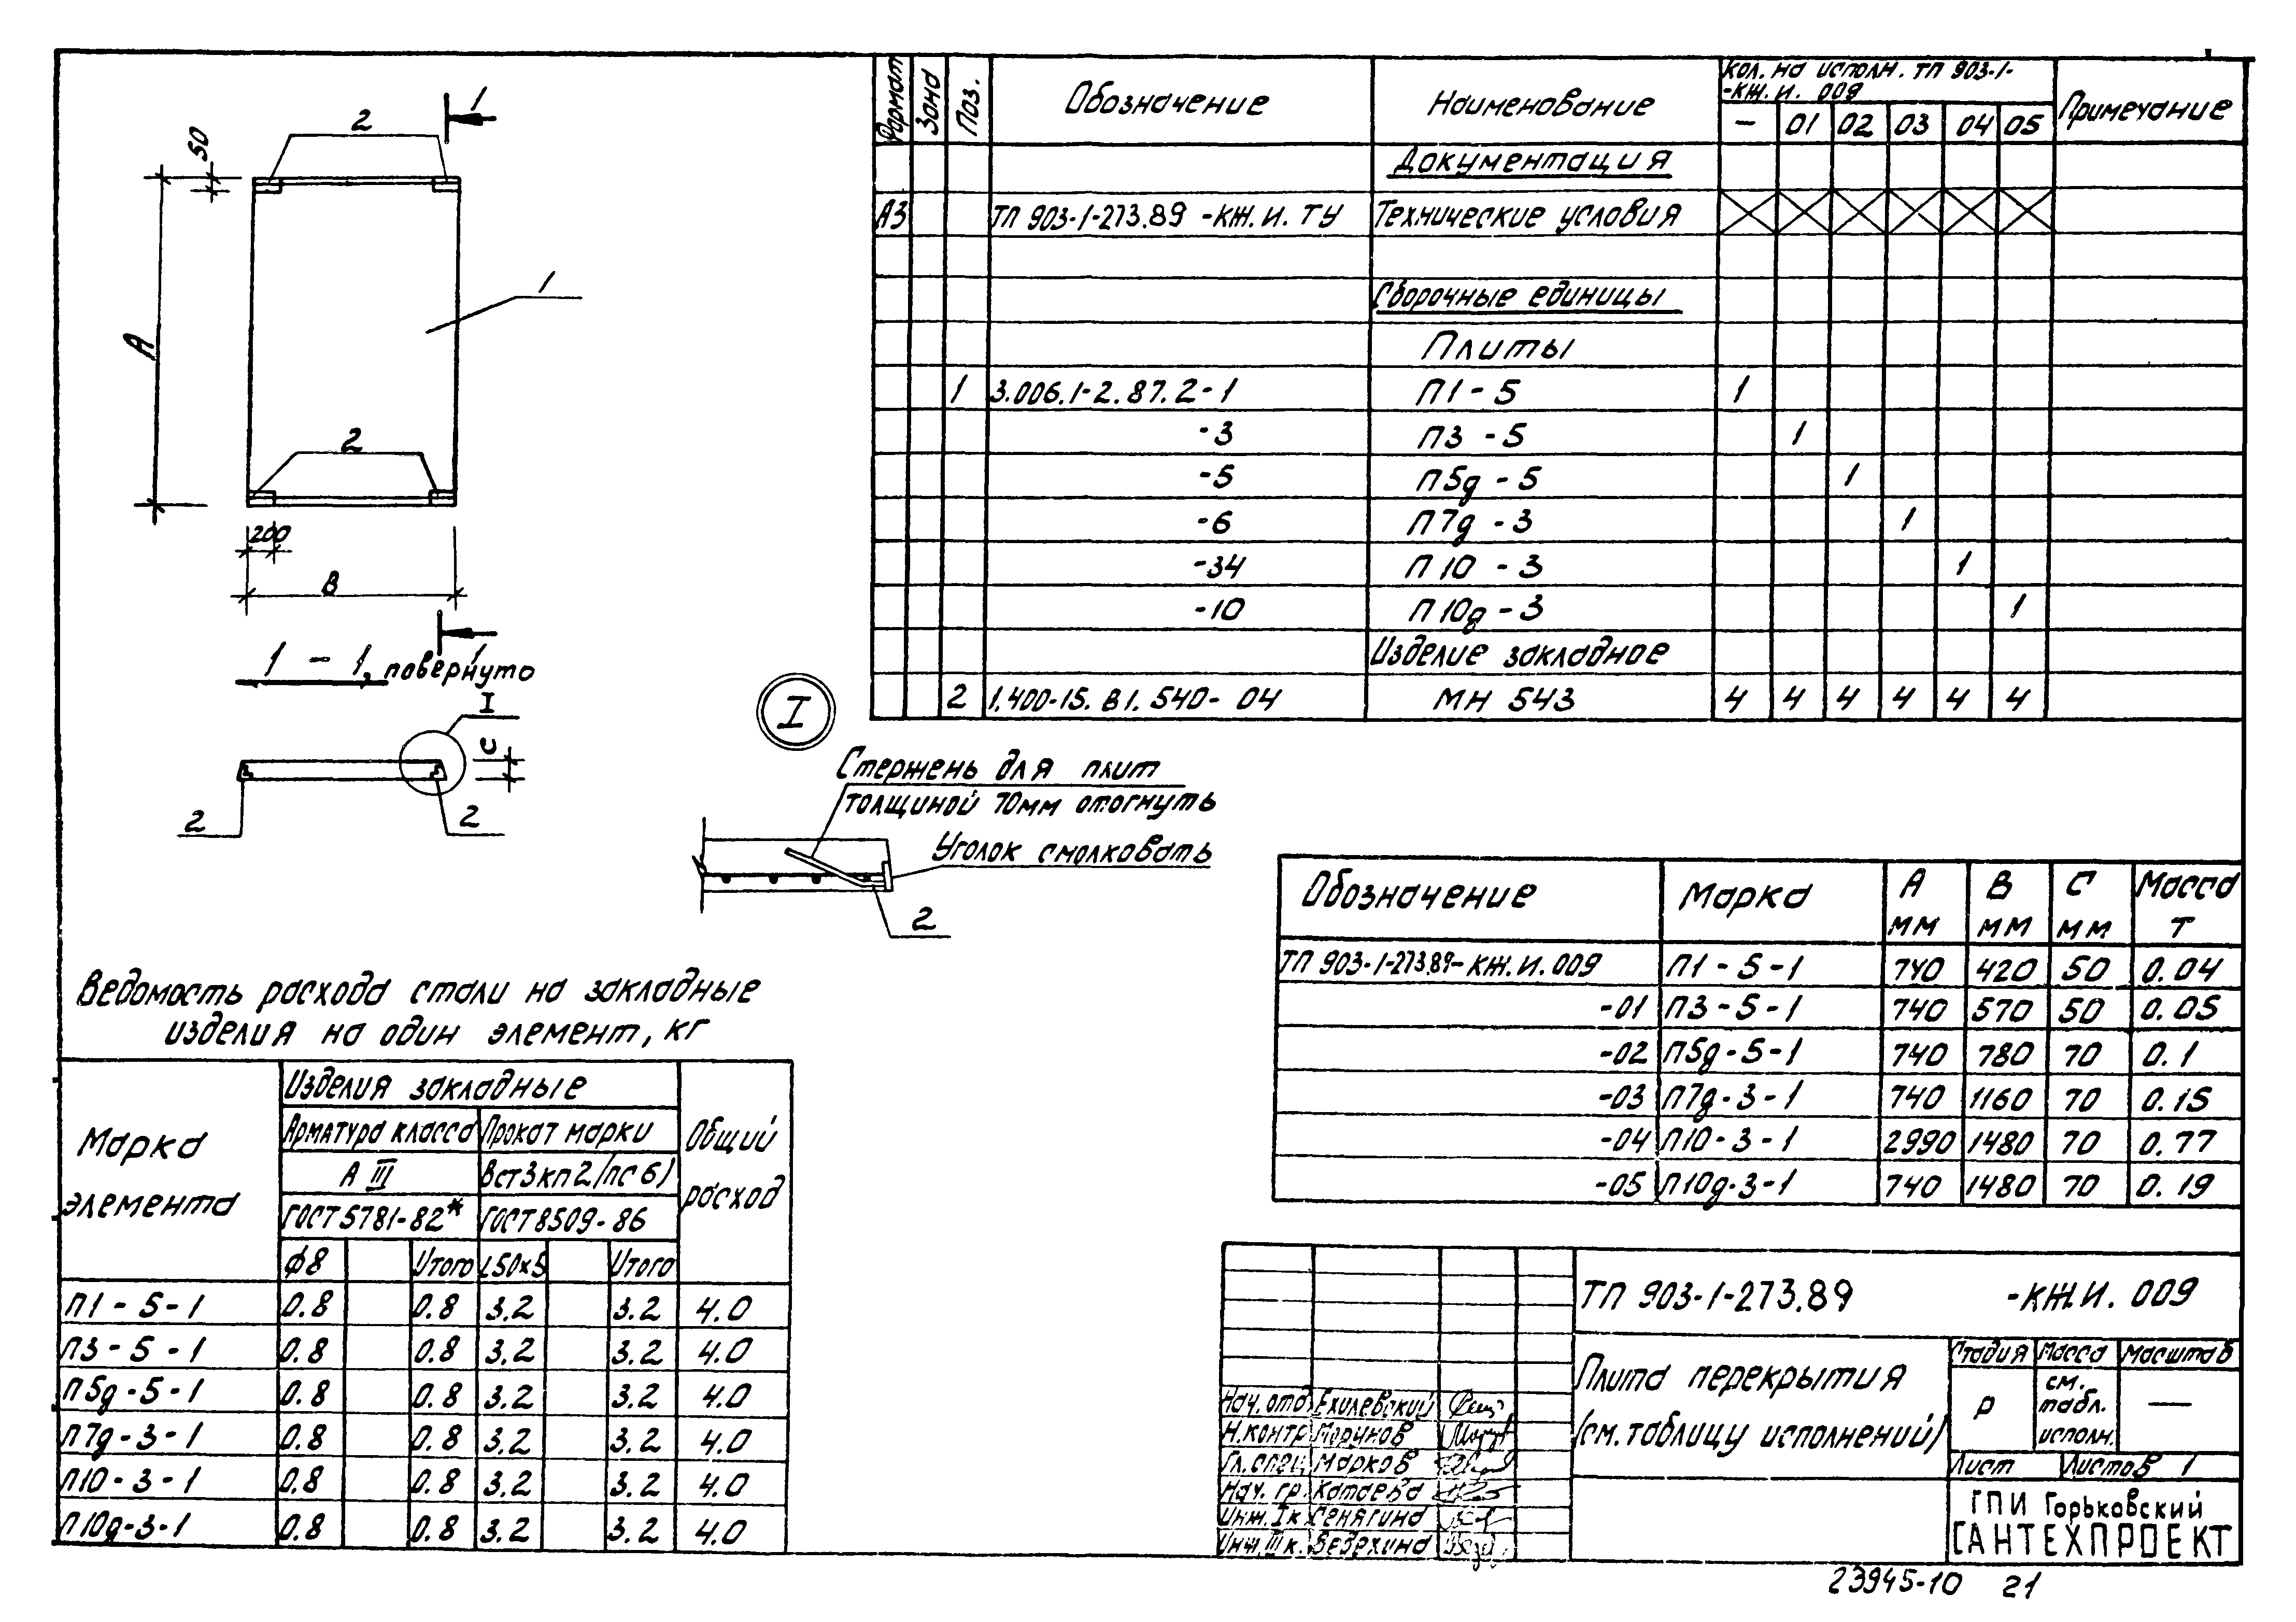 1
2
50
A
1
2
200
В
1
1 - 1, повернуто
I
С
2 2
I
Стержень для плит
толщиной 70мм отогнуть
Уголок смолковать
2
Формат Зона Поз. Обозначение Наименование Кол. на исполн. ТП 903-1- Примечание
-КЖ.И. 009
- 01 02 03 04 05
Документация
А3 ТП 903-1-273.89 -КЖ.И.ТУ Технические условия
Сборочные единицы
Плиты
1 3.006.1-2.87.2-1 П1-5 1
-3 П3-5 1
-5 П5д-5 1
-6 П7д-3 1
-34 П10-3 1
-10 П10д-3 1
Изделие закладное
2 1.400-15.В1.540-04 МН 543 4 4 4 4 4 4
Обозначение Марка А мм В мм С мм Масса т
ТП 903-1-273.89-КЖ.И.009 П1-5-1 740 420 50 0.04
-01 П3-5-1 740 570 50 0.05
-02 П5д-5-1 740 780 70 0.1
-03 П7д-3-1 740 1160 70 0.15
-04 П10-3-1 2990 1480 70 0.77
-05 П10д-3-1 740 1480 70 0.19
Ведомость расхода стали на закладные
изделия на один элемент, кг
Марка элемента Изделия закладные Общий расход
Арматура класса Прокат марки
А III Вст3кп2/пс6)
ГОСТ 5781-82* ГОСТ 8509-86
ф8 Итого L50×5 Итого
П1-5-1 0.8 0.8 3.2 3.2 4.0
П3-5-1 0.8 0.8 3.2 3.2 4.0
П5д-5-1 0.8 0.8 3.2 3.2 4.0
П7д-3-1 0.8 0.8 3.2 3.2 4.0
П10-3-1 0.8 0.8 3.2 3.2 4.0
П10д-3-1 0.8 0.8 3.2 3.2 4.0
ТП 903-1-273.89 -КЖ.И. 009
Плита перекрытия
(см.таблицу исполнений)
Стадия Масса Масштаб
Р см. табл. исполн. —
Лист Листов 1
Нач.отд Ехилевский
Н.контр
Гл.спец Марков
Нач. гр. Катаева
Инж.Iк Сенягина
Инж.IIIк.
ГПИ Горьковский
САНТЕХПРОЕКТ
23945-10 21